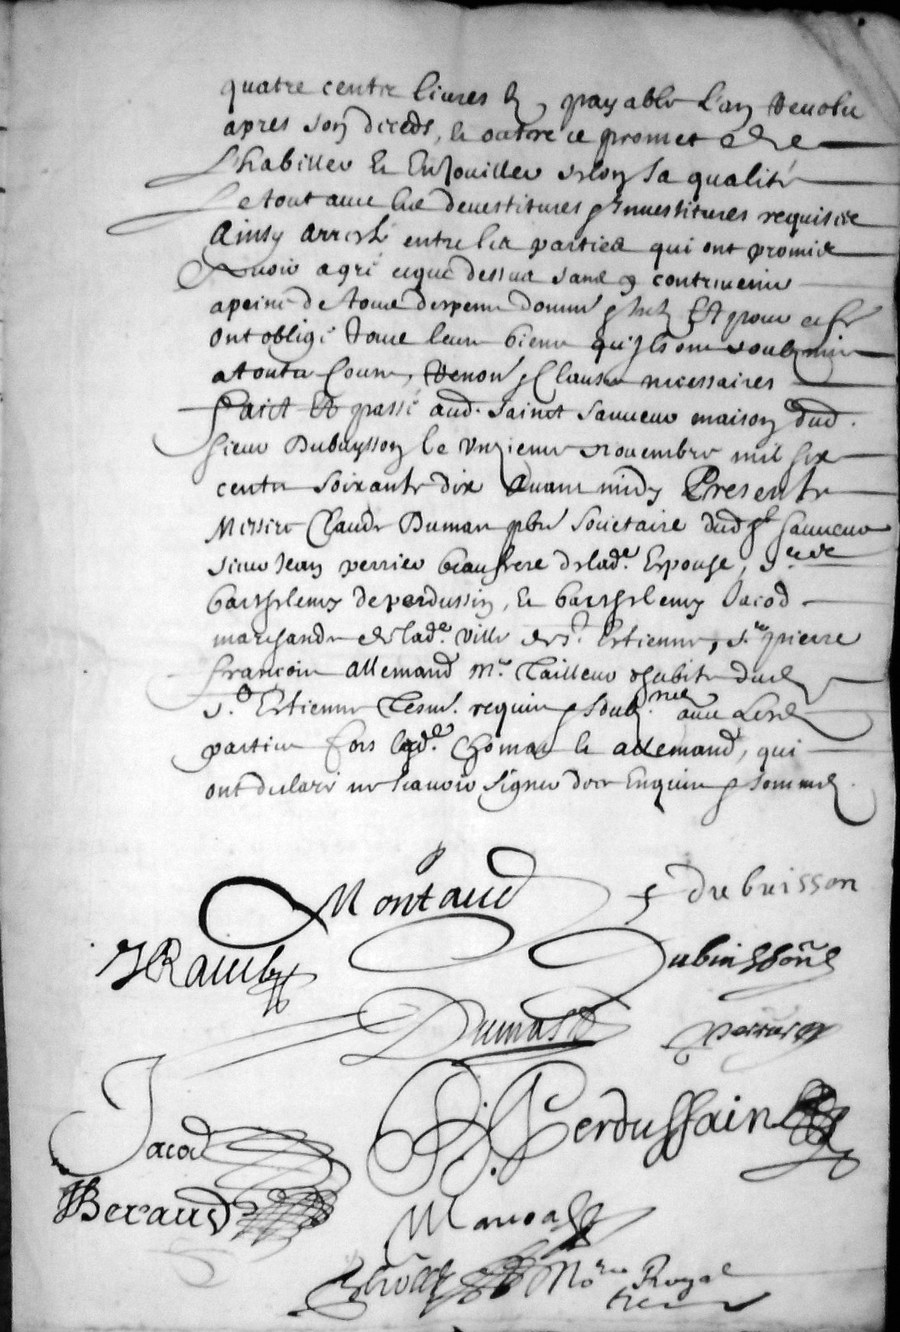 quatre centz livres & payable l'an revolu
apres son deceds, & outre ce promet
L'habiller & Enjouiller selon sa qualité
Le tout avec les devestitures & Investitures requises
Ainsy Arresté entre les parties qui ont promis
avoir agréé ceque dessus sans y contrevenir
a peine de tous despens dom &
ont obligé tous leurs biens qu'ils ont soubzmis
a toutes Cours, Renon & Clauses necessaires
Faict Et passé aud. Sainct Sauveur maison dud.
sieur Dubuysson le unzieme novembre mil six
centz soixante dix Avant midy Presentz
Messire Claude Dumas pbre Societaire dud St Sauveur
sieur Jean perrier beaufrere de lad.e Espouse,
barthelemy deperdussin, & barthelemy Jacod
marchandz de lad.e ville de St. Estienne, Sr. pierre
françois allemand Me. Tailleur habitt dud
St. Estienne Tesm. requis & soubz.nez avec Lesd
parties fors lad.e Thomas & allemand, qui
ont declaré ne scavoir signer de ce Enquis & sommez.
Montaud
f dubuisson
JRavel
Dubuisson
Dumas
perrier
Jacod
B. Perdussain
Beraud
No.re Royal